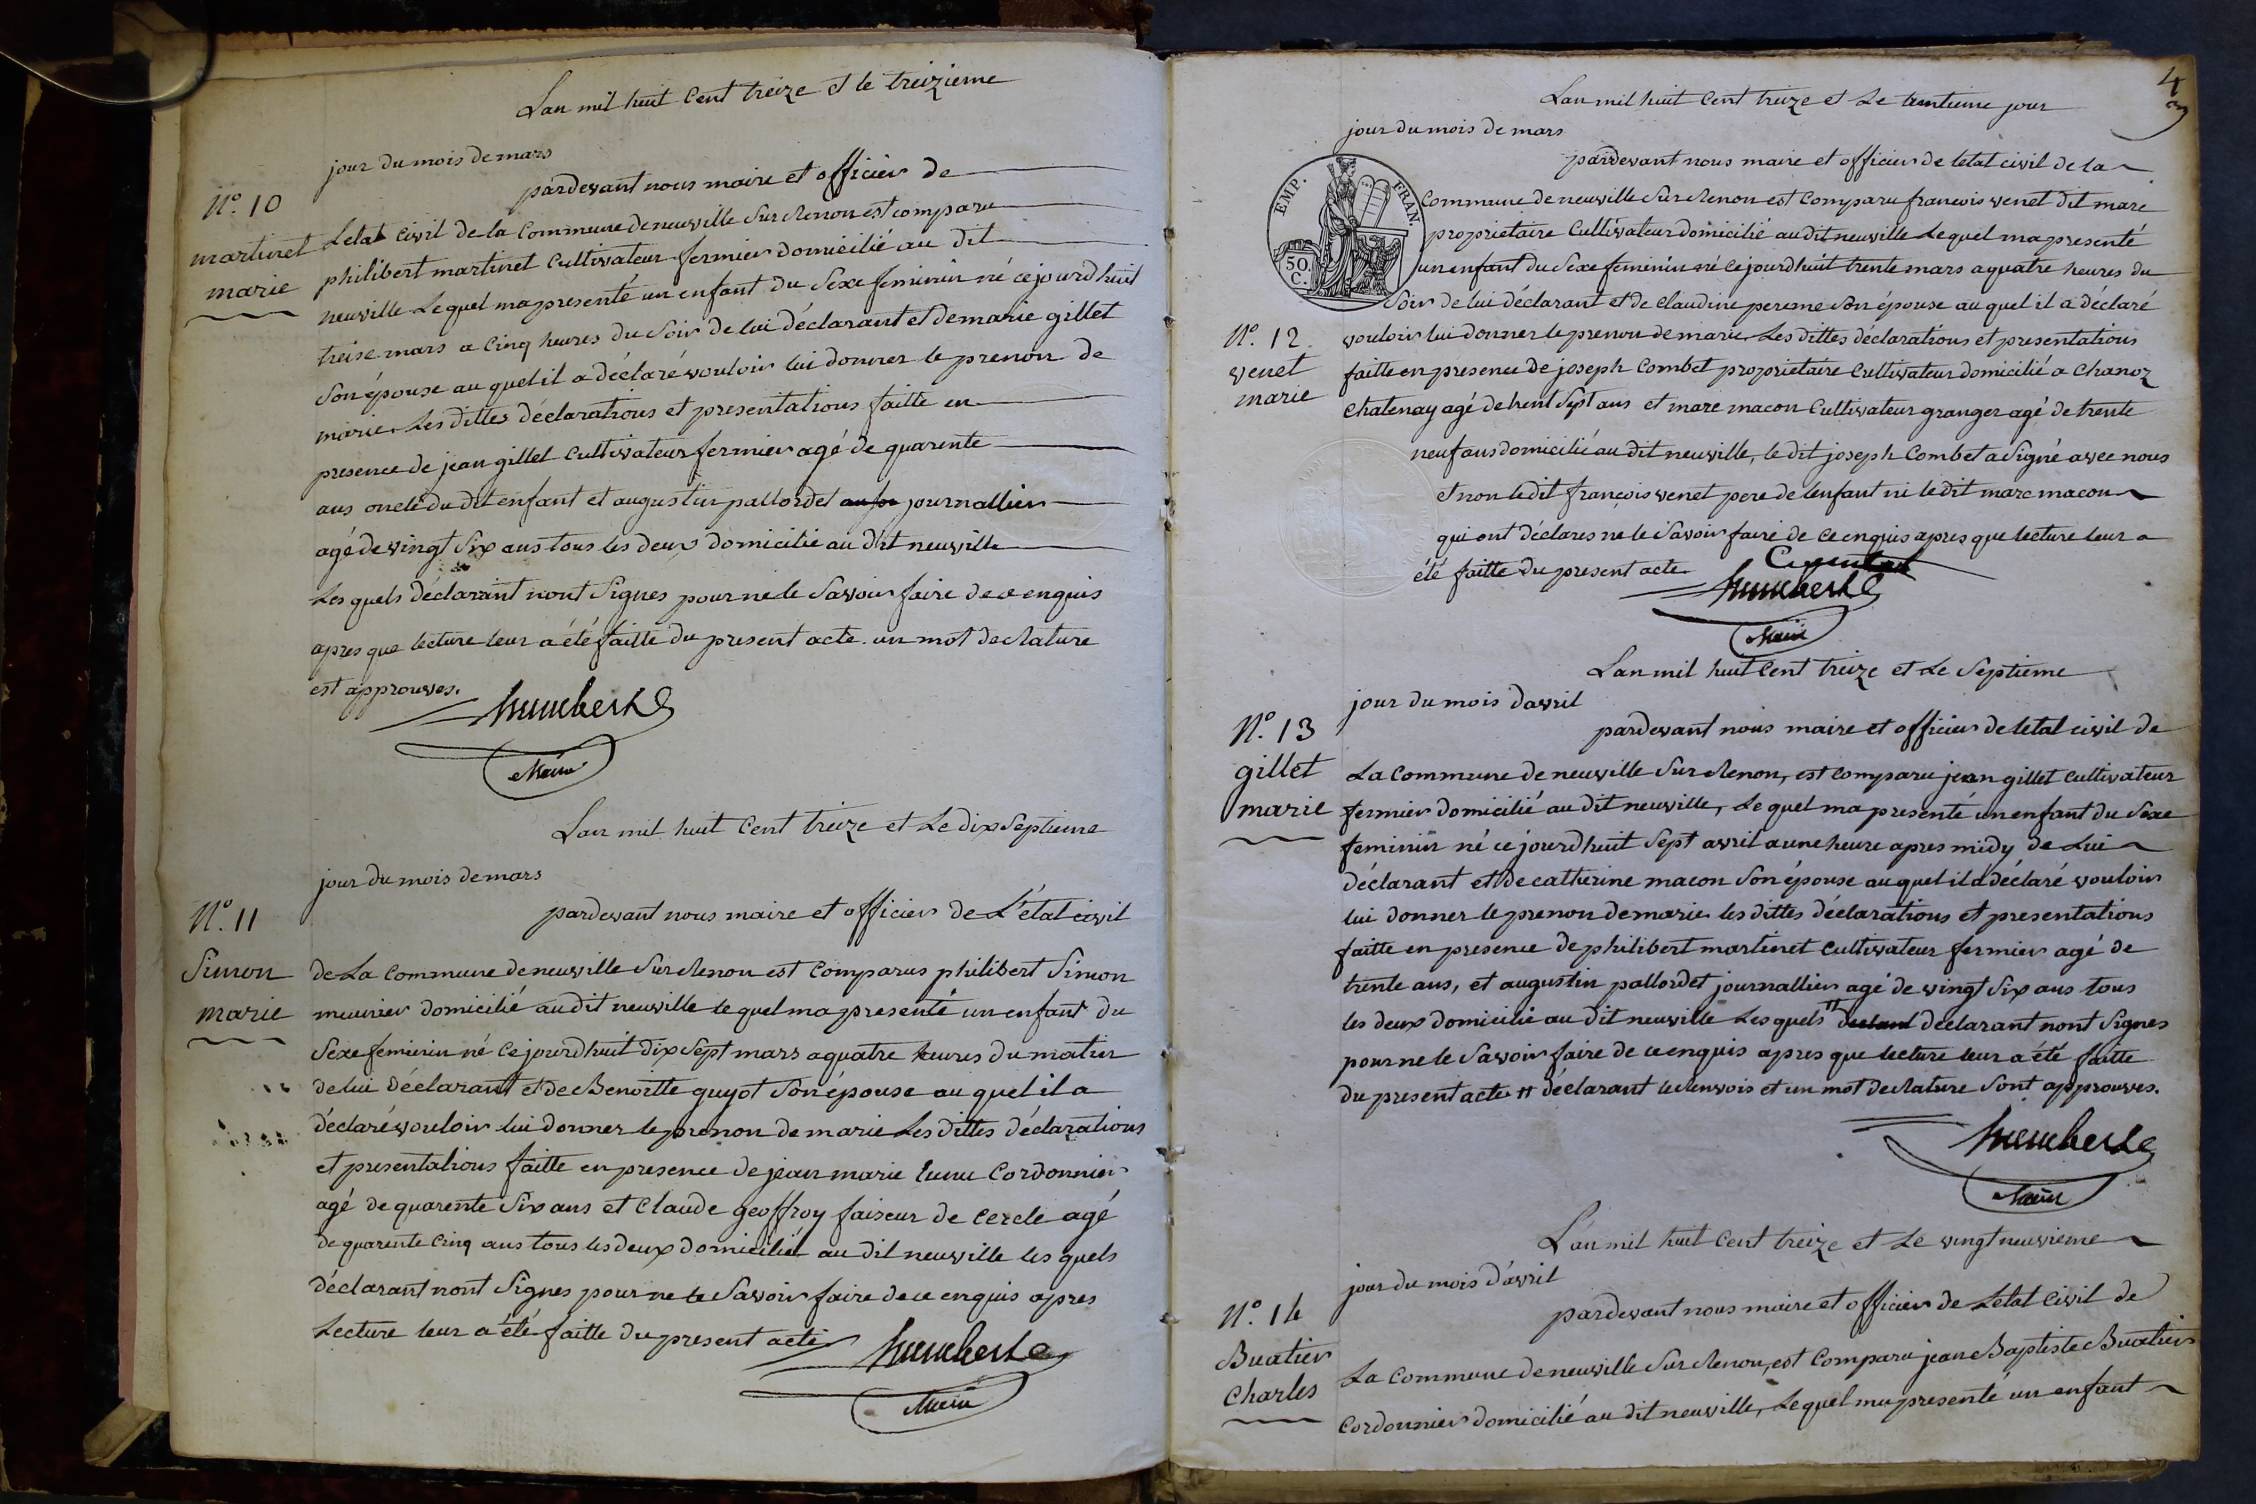 Lan mil huit Cent treize et le treizieme
jour du mois de mars
pardevant nous maire et officier de
N.o 10
martinet
marie
Letat civil de la Commune de neuville Sur Renon est comparu
philibert martinet Cultivateur fermier domicilié au dit
neuville Lequel ma presenté un enfant du Sexe feminin né cejourdhuit
treise mars a Cinq heures du Soir de lui déclarant et de marie gillet
Son épouse au quel il a déclaré vouloir lui donner le prenon de
marie. Les dittes déclarations et presentations faitte en
presence de jean gillet Cultivateur fermier agé de quarente
ans oncle du dit enfant et augustin pallordet journallier
agé de vingt Six ans tous les deux domicilié au dit neuville
Les quels déclarant nont Signes pour ne le Savoir faire de ce enquis
apres que lecture leur a été faitte du present acte. un mot de Rature
est approuves.
humbert
Maire
Lan mil huit Cent treize et Le dix Septieme
jour du mois de mars
pardevant nous maire et officier de L'état civil
N.o 11
Simon
marie
de La Commune de neuville Sur Renon est Comparus philibert Simon
meunier domicilié audit neuville le quel ma presenté un enfant du
Sexe feminin né Cejourdhuit dix Sept mars a quatre heures du matin
de lui déclarant et de Benoitte guyot Son épouse au quel il a
déclaré vouloir lui donner le prenon de marie Les dittes déclarations
et presentations faitte en presence de jean marie Cordonnier
agé de quarente Six ans et Claude geoffroy faiseur de Cercle agé
de quarente Cinq ans tous les deux domicilié au dit neuville les quels
déclarant nont Signes pour ne le Savoir faire de ce enquis apres
Lecture leur a été faitte du present acte
humbert
Maire
4
Lan mil huit Cent treize et Le trentieme jour
jour du mois de mars
pardevant nous maire et officier de letat civil de la
EMP. FRAN
50 C.
Commune de neuville Sur Renon est Comparu francois venet dit marc
proprietaire Cultivateur domicilié au dit neuville Lequel ma presenté
un enfant du Sexe feminin né Cejourdhuit trente mars a quatre heures du
Soir de lui déclarant et de claudine perone Son épouse au quel il a déclaré
N.o 12.
venet
marie
vouloir lui donner le prenon de marie Les dittes déclarations et presentations
faitte en presence de joseph Combet proprietaire Cultivateur domicilié a Chanoz
Chatenay agé de trent Sept ans et marc macon Cultivateur granger agé de trente
neuf ans domicilié au dit neuville, le dit joseph Combet a Signé avec nous
et non ledit françois venet pere de lenfant ni le dit marc macon
qui ont déclares ne le Savoir faire de ce enquis apres que lecture leur a
été faitte du present acte
humbert
Maire
Lan mil huit Cent treize et Le Septieme
jour du mois davril
pardevant nous maire et officier de letat civil de
N.o 13
gillet
marie
La Commune de neuville Sur Renon, est Comparu jean gillet cultivateur
fermier domicilié au dit neuville, Le quel ma presenté un enfant du Sexe
feminin né ce jourdhuit Sept avril a une heure apres midy de Lui
déclarant et de catherine macon Son épouse au quel il a déclaré vouloir
lui donner le prenon de marie les dittes déclarations et presentations
faitte en presence de philibert martinet cultivateur fermier agé de
trente ans, et augustin pallordet journallier agé de vingt Six ans tous
les deux domicilié au dit neuville Les quels déclarant nont Signes
pour ne le Savoir faire de ce enquis apres que lecture leur a été faitte
du present acte # déclarant le Renvois et un mot de Rature Sont approuves.
humbert
Maire
L'an mil huit Cent treize et Le vingt neuvieme
jour du mois d'avril
pardevant nous maire et officier de Letat Civil de
N.o 14
Buatier
Charles
La Commune de neuville Sur Renon, est Comparu jean Baptiste Buatier
Cordonnier domicilié au dit neuville, Lequel ma presenté un enfant